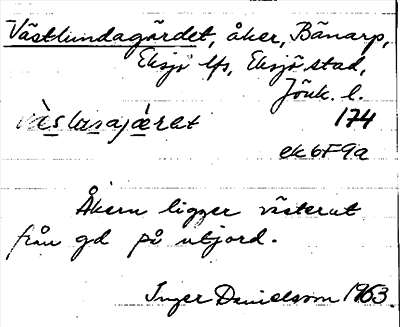 Västlundagärdet, åker, Bänarp,
Eksjö lfs, Eksjö stad,
Jönk. l.
174
ek6F9a
Åkern ligger västerut
från gd på utjord.
Inger Danielsson 1963.